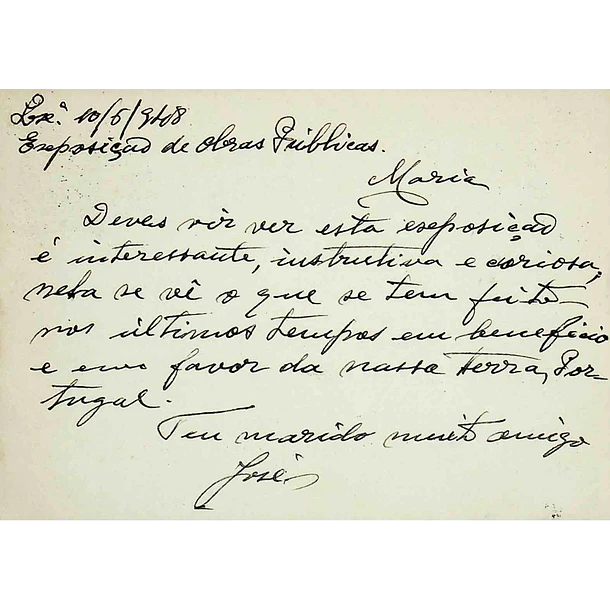 Lxª. 10/6/948
Exposição de Obras Públicas.
Maria
Deves vir ver esta exposição
é interessante, instrutiva e coriosa,
nela se vê o que se tem feito
nos últimos tempos em beneficio
e em favor da nossa terra, Por-
tugal.
Teu marido muito amigo
José